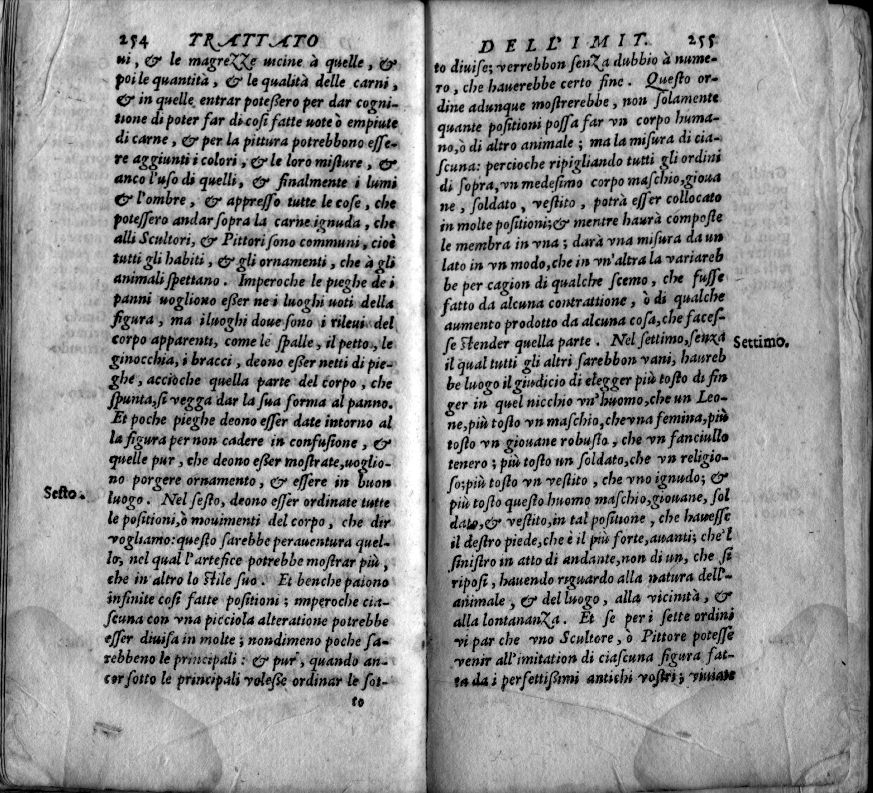 254 TRATTATO
ui, & le magrezze uicine à quelle, &
poi le quantità, & le qualità delle carni,
& in quelle entrar poteßero per dar cogni-
tione di poter far di cosi fatte uote ò empiute
di carne, & per la pittura potrebbono esse-
re aggiunti i colori, & le loro misture, &
anco l'uso di quelli, & finalmente i lumi
& l'ombre, & appresso tutte le cose, che
potessero andar sopra la carne ignuda, che
alli Scultori, & Pittori sono communi, cioè
tutti gli habiti, & gli ornamenti, che à gli
animali spettano. Imperoche le pieghe de i
panni uogliono eßer ne i luoghi uoti della
figura, ma i luoghi doue sono i rileui del
corpo apparenti, come le spalle, il petto, le
ginocchia, i bracci, deono eßer netti di pie-
ghe, accioche quella parte del corpo, che
spunta, si vegga dar la sua forma al panno.
Et poche pieghe deono esser date intorno al
la figura per non cadere in confusione, &
quelle pur, che deono eßer mostrate, uoglio-
no porgere ornamento, & essere in buon
Sesto. luogo. Nel sesto, deono esser ordinate tutte
le positioni, ò mouimenti del corpo, che dir
vogliamo: questo sarebbe perauentura quel-
lo, nel qual l'artefice potrebbe mostrar più,
che in altro lo stile suo. Et benche paiono
infinite cosi fatte positioni; imperoche cia-
scuna con vna picciola alteratione potrebbe
esser diuisa in molte; nondimeno poche sa-
rebbeno le principali: & pur, quando an-
cor sotto le principali voleße ordinar le sot-
to
DELL'IMIT. 255
to diuise; verrebbon senza dubbio à nume-
ro, che hauerebbe certo fine. Questo or-
dine adunque mostrerebbe, non solamente
quante positioni possa far vn corpo huma-
no, ò di altro animale; ma la misura di cia-
scuna: percioche ripigliando tutti gli ordini
di sopra, vn medesimo corpo maschio, gioua
ne, soldato, vestito, potrà esser collocato
in molte positioni; & mentre haurà composte
le membra in vna; darà vna misura da un
lato in vn modo, che in vn'altra la variareb
be per cagion di qualche scemo, che fusse
fatto da alcuna contrattione, ò di qualche
aumento prodotto da alcuna cosa, che faces-
se stender quella parte. Nel settimo, senza Settimo.
il qual tutti gli altri sarebbon vani, haureb
be luogo il giudicio di elegger più tosto di fin
ger in quel nicchio vn'huomo, che un Leo-
ne, più tosto vn maschio, che vna femina, più
tosto vn giouane robusto, che vn fanciullo
tenero; più tosto un soldato, che vn religio-
so; più tosto vn vestito, che vno ignudo; &
più tosto questo huomo maschio, giouane, sol
dato, & vestito, in tal positione, che hauesse
il destro piede, che è il più forte, auanti; che'l
sinistro in atto di andante, non di un, che si
riposi, hauendo riguardo alla natura dell'-
animale, & del luogo, alla vicinità, &
alla lontananza. Et se per i sette ordini
vi par che vno Scultore, o Pittore potesse
venir all'imitation di ciascuna figura fat-
ta da i perfettißimi antichi vostri; viuiate